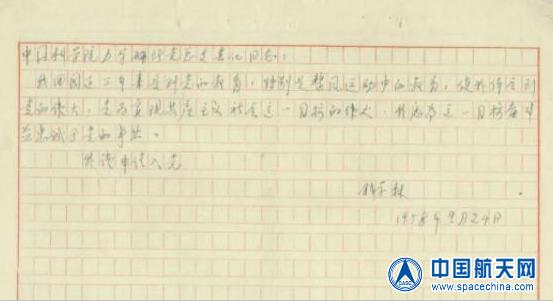 中国科学院力学研究所党总支书记同志:
我回国这三年来受到党的教育,特别是整风运动中的教育,使我体会到
党的伟大,党为实现共产主义社会这一目标的伟大,我愿为这一目标奋斗
并忠诚于党的事业。
我谨申请入党
钱学森
1958年9月24日
CASC
中国航天网
www.spacechina.com